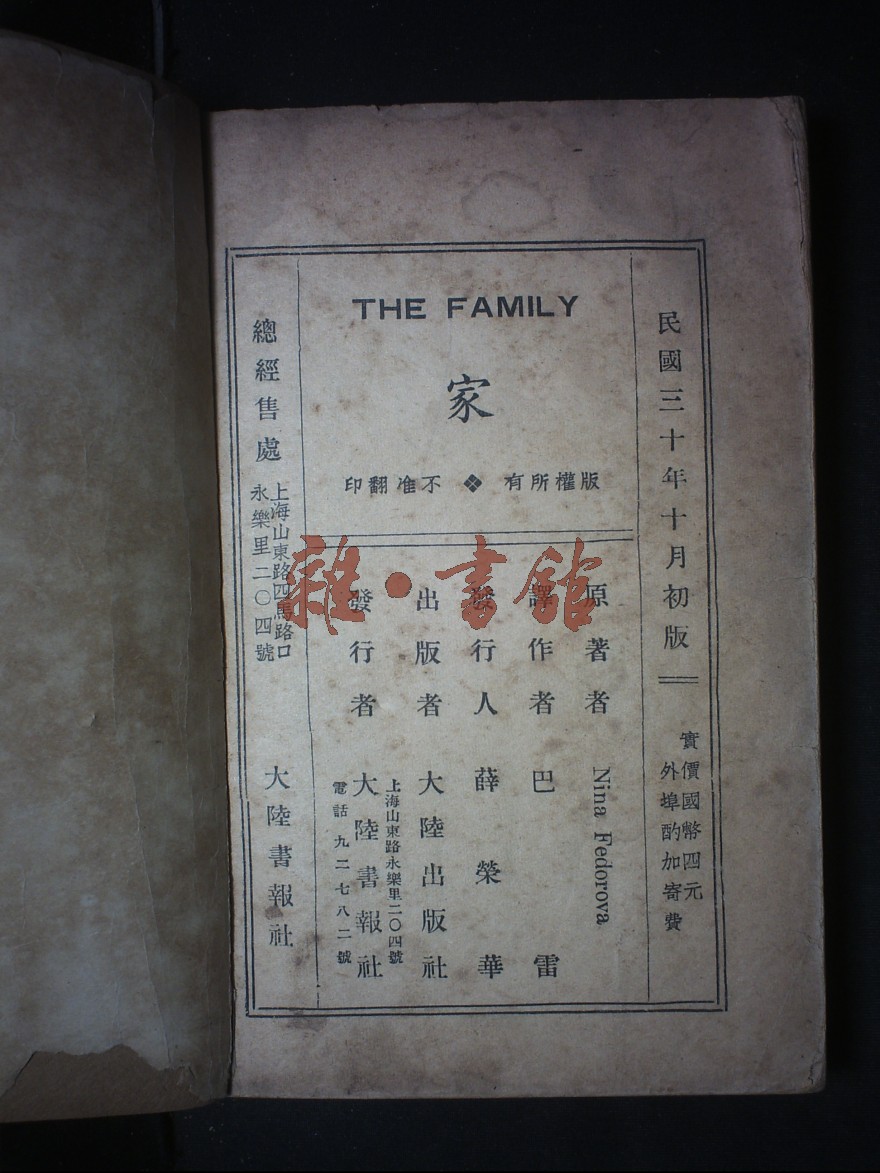 THE FAMILY
家
版權所有 ❖ 不准翻印
民國三十年十月初版
實價國幣四元
外埠酌加寄費
原著者 Nina Fedorova
譯作者 巴雷
發行人 薛榮華
出版者 大陸出版社
上海山東路永樂里二〇四號
發行者 大陸書報社
電話 九二七八二號
總經售處
上海山東路四馬路口
永樂里二〇四號
大陸書報社
雜·書館